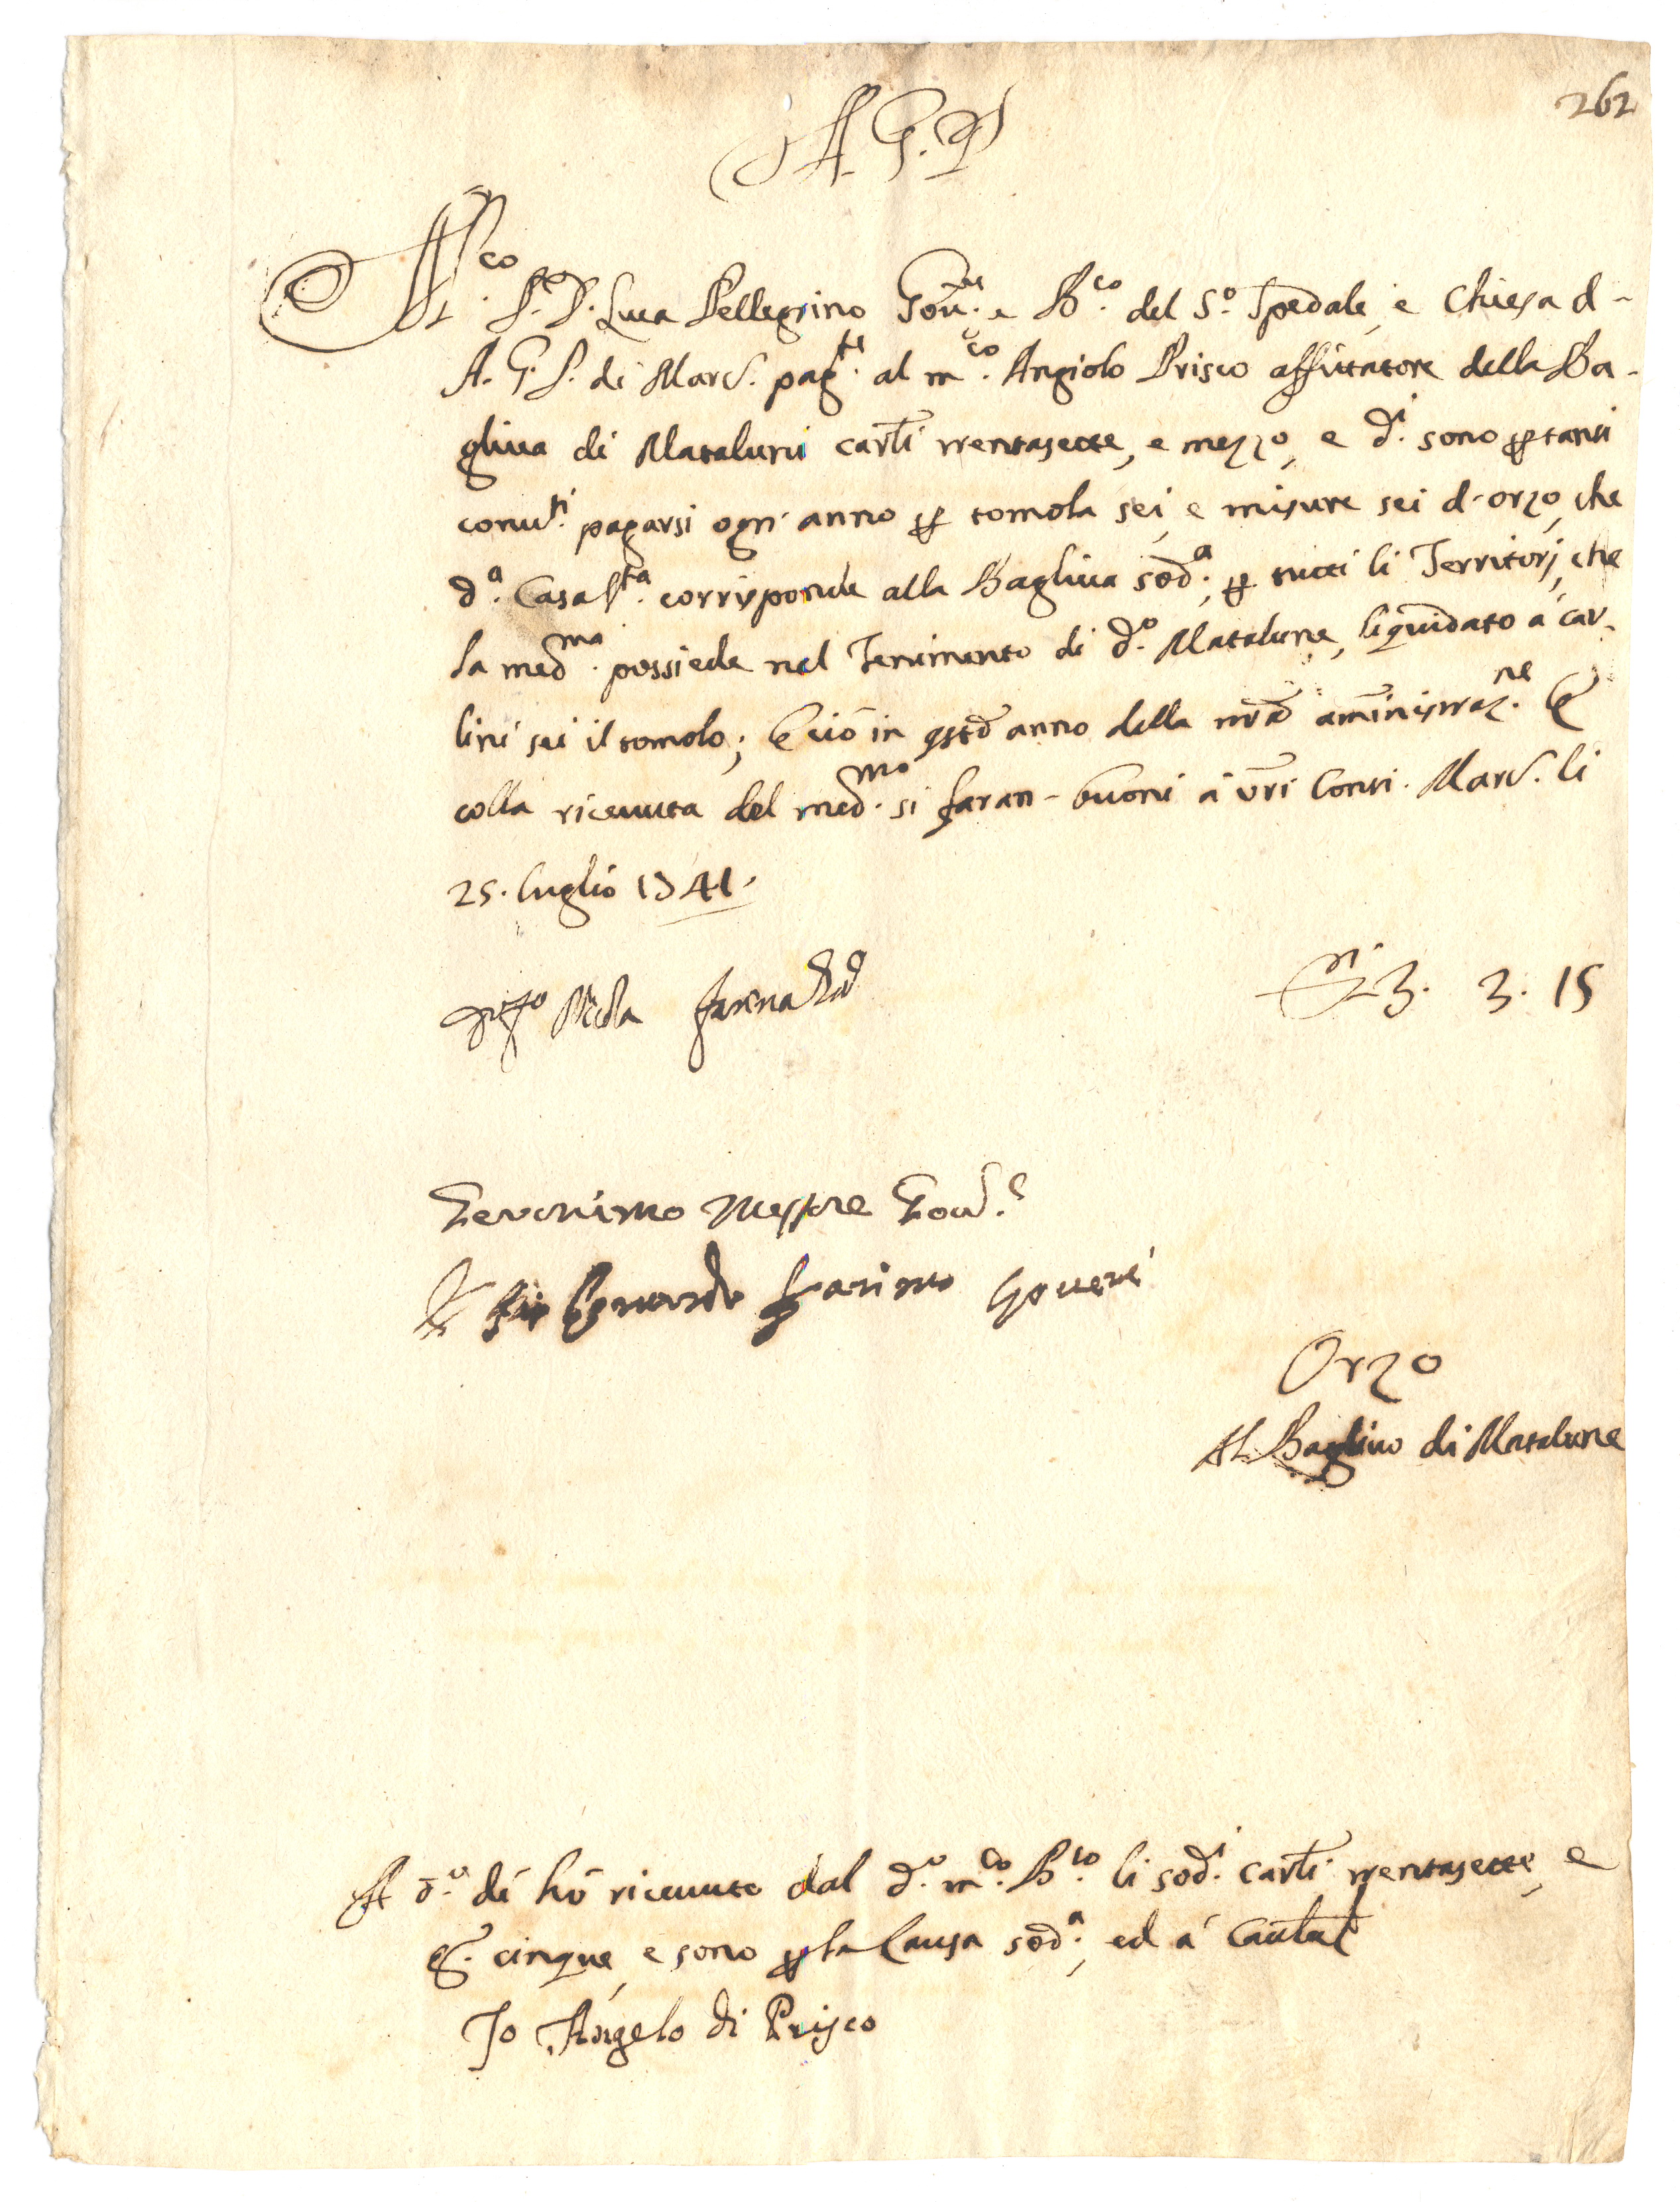 262
A. G. P.
M.co Sr. D. Luca Pellegrino Gov.re e B.co del S.o Spedale, e Chiesa d-
A. G. P. di Marc. pag.te al m.co Angiolo Prisco affittatore della Ba-
gliva di Mataluni carl.i trentasette, e mezzo, e d.i sono p tanti
conv.ti pagarsi ogn' anno p tomola sei, e misure sei d-orzo, che
d.a Casa S.ta corrisponde alla Bagliva sod.a, p tutti li Territorj, che
la med.ma possiede nel Tenimento di d.o Matalune, liquidato à car-
lini sei il tomolo; E ciò in qsto anno della nra amministraz.ne E
colla ricevuta del med.mo si faran- buoni a' vri Conti. Marc. li
25. luglio 1741.
D.i 3. 3. 15
Geronimo Mastore Gov.e
Orzo
Al Baglivo di Matalune
A d.o dì hò ricevuto dal d.o m.co B.co li sod.i carl.i trentasette, e
g. cinque, e sono p la Causa sod.a, ed à Cautel
Io Angelo di Prisco